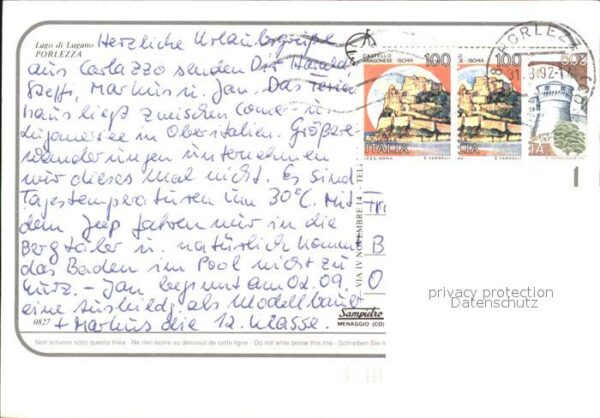 Lago di Lugano
PORLEZZA
Herzliche Urlaubsgrüße
aus Carlazzo senden Dir Harald
Steffi, Markus u. Jan. Das Ferien
haus liegt zwischen Comer- u.
Luganersee in Oberitalien. Größere
Wanderungen unternehmen
wir dieses Mal nicht. Es sind
Tagestemperaturen um 30°C. Mit
dem Jeep fahren wir in die
Bergtäler u. natürlich kommt
das Baden im Pool nicht zu
kurz. - Jan beginnt am 02.09.
eine Ausbildg. als Modellbauer
+ Markus die 12. Klasse.
0827
Non scrivere sotto questa linea - Ne rien écrire au dessous de cette ligne - Do not write below this line - Schreiben Sie
VIA IV NOVEMBRE 14 - TEL
Sampietro
MENAGGIO (CO)
CASTELLO
ARAGONESE - ISCHIA
100
ITALIA
I.P.Z.S. ROMA
E. VANGELLI
ISCHIA
100
E. VANGELLI
PORLEZZ
31.8.92
B
O
privacy protection
Datenschutz